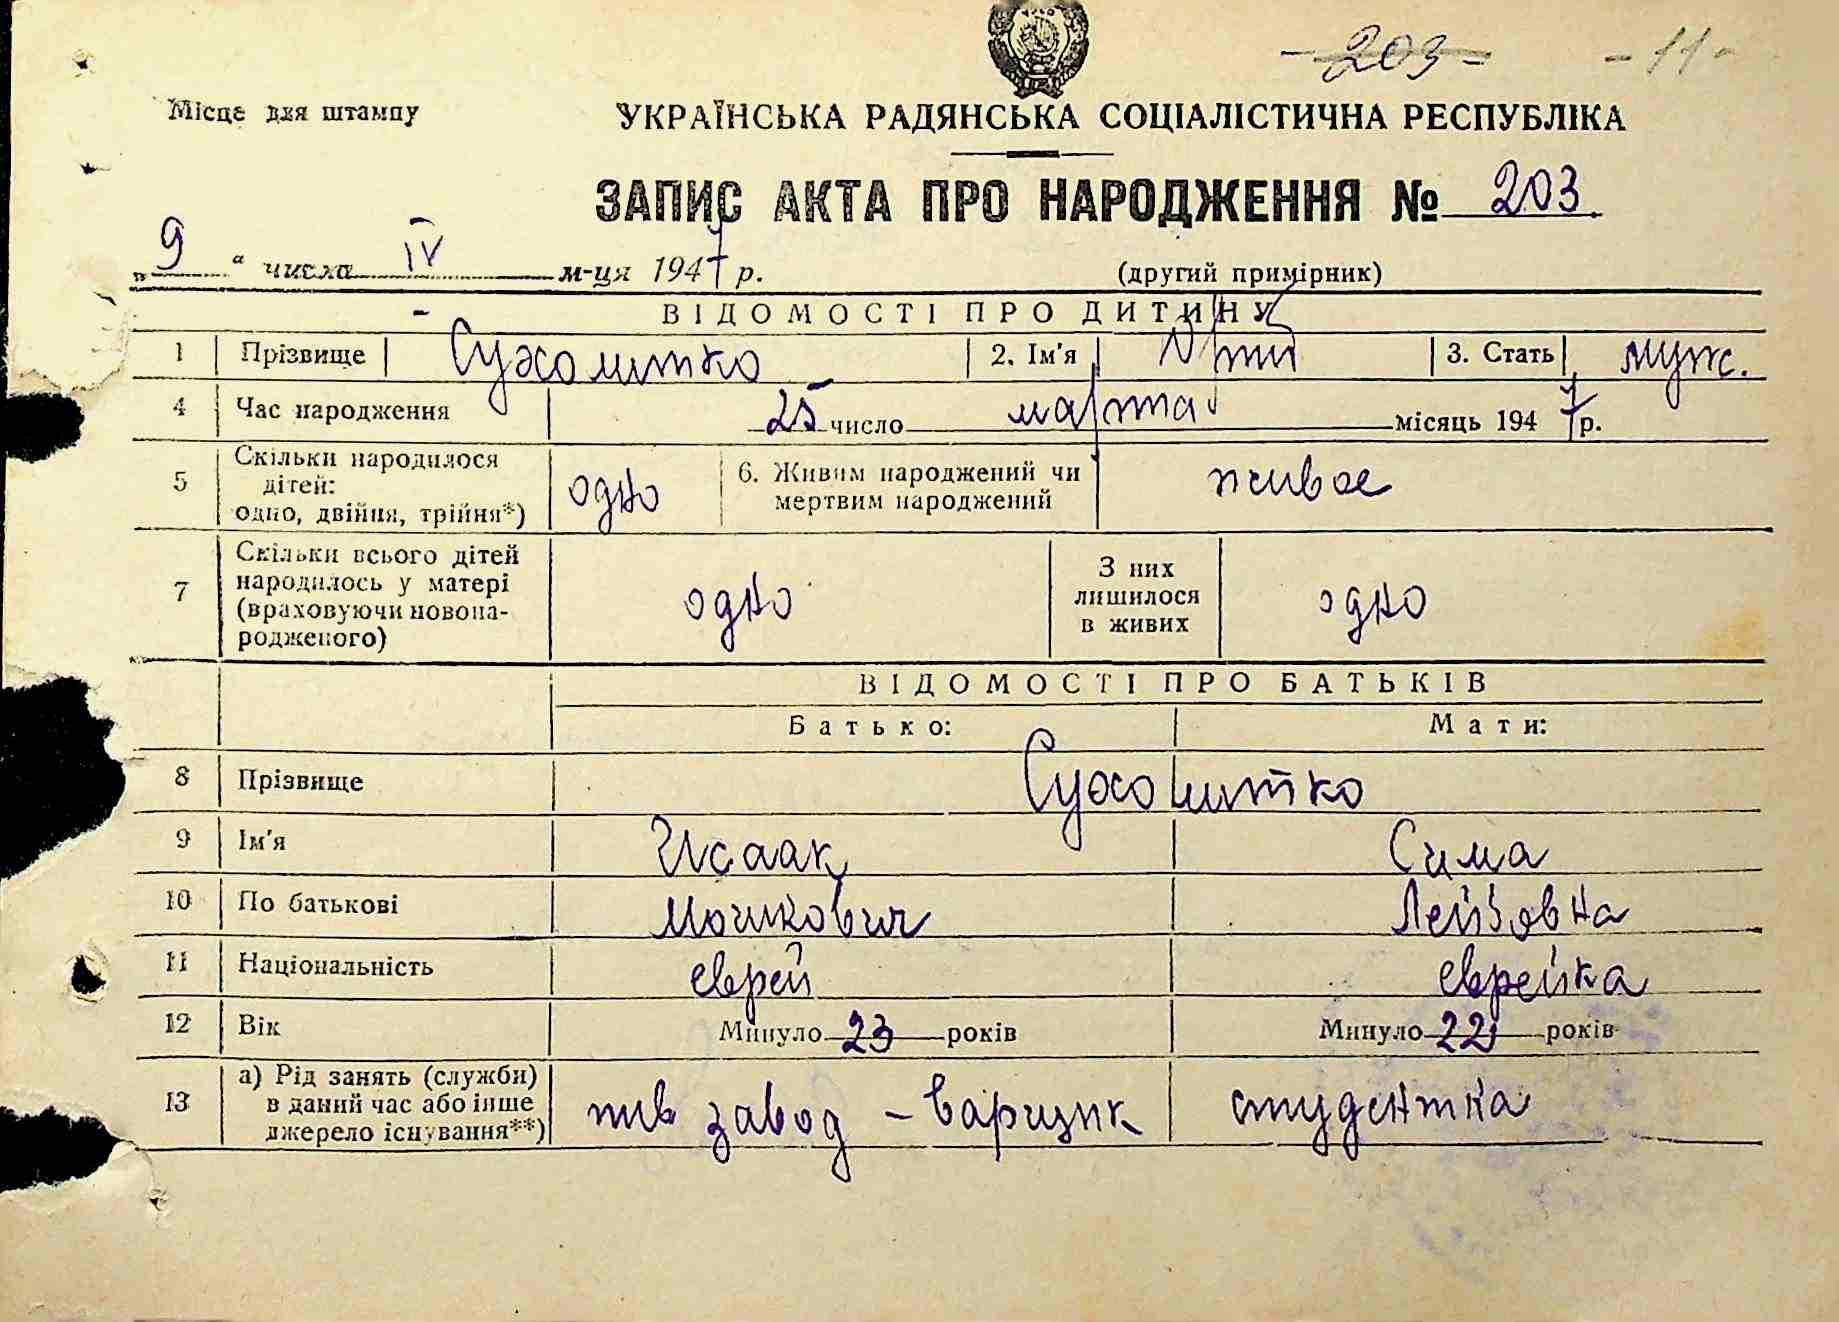 - 203 - - 11 -
Місце для штампу
УКРАЇНСЬКА РАДЯНСЬКА СОЦІАЛІСТИЧНА РЕСПУБЛІКА
ЗАПИС АКТА ПРО НАРОДЖЕННЯ № 203
„9“ числа IV м-ця 1947 р. (другий примірник)
ВІДОМОСТІ ПРО ДИТИНУ
1 Прізвище Сухолитко 2. Ім'я Юрий 3. Стать муж.
4 Час народження 25 число марта місяць 1947 р.
5 Скільки народилося дітей: одно, двійня, трійня*) одно 6. Живим народжений чи мертвим народжений живое
7 Скільки всього дітей народилось у матері (враховуючи новонародженого) одно З них лишилося в живих одно
ВІДОМОСТІ ПРО БАТЬКІВ
Батько: Мати:
8 Прізвище Сухолитко
9 Ім'я Исаак Сима
10 По батькові Мошкович Лейзовна
11 Національність еврей еврейка
12 Вік Минуло 23 років Минуло 22 років
13 а) Рід занять (служби) в даний час або інше джерело існування**) пив завод - варщик студентка